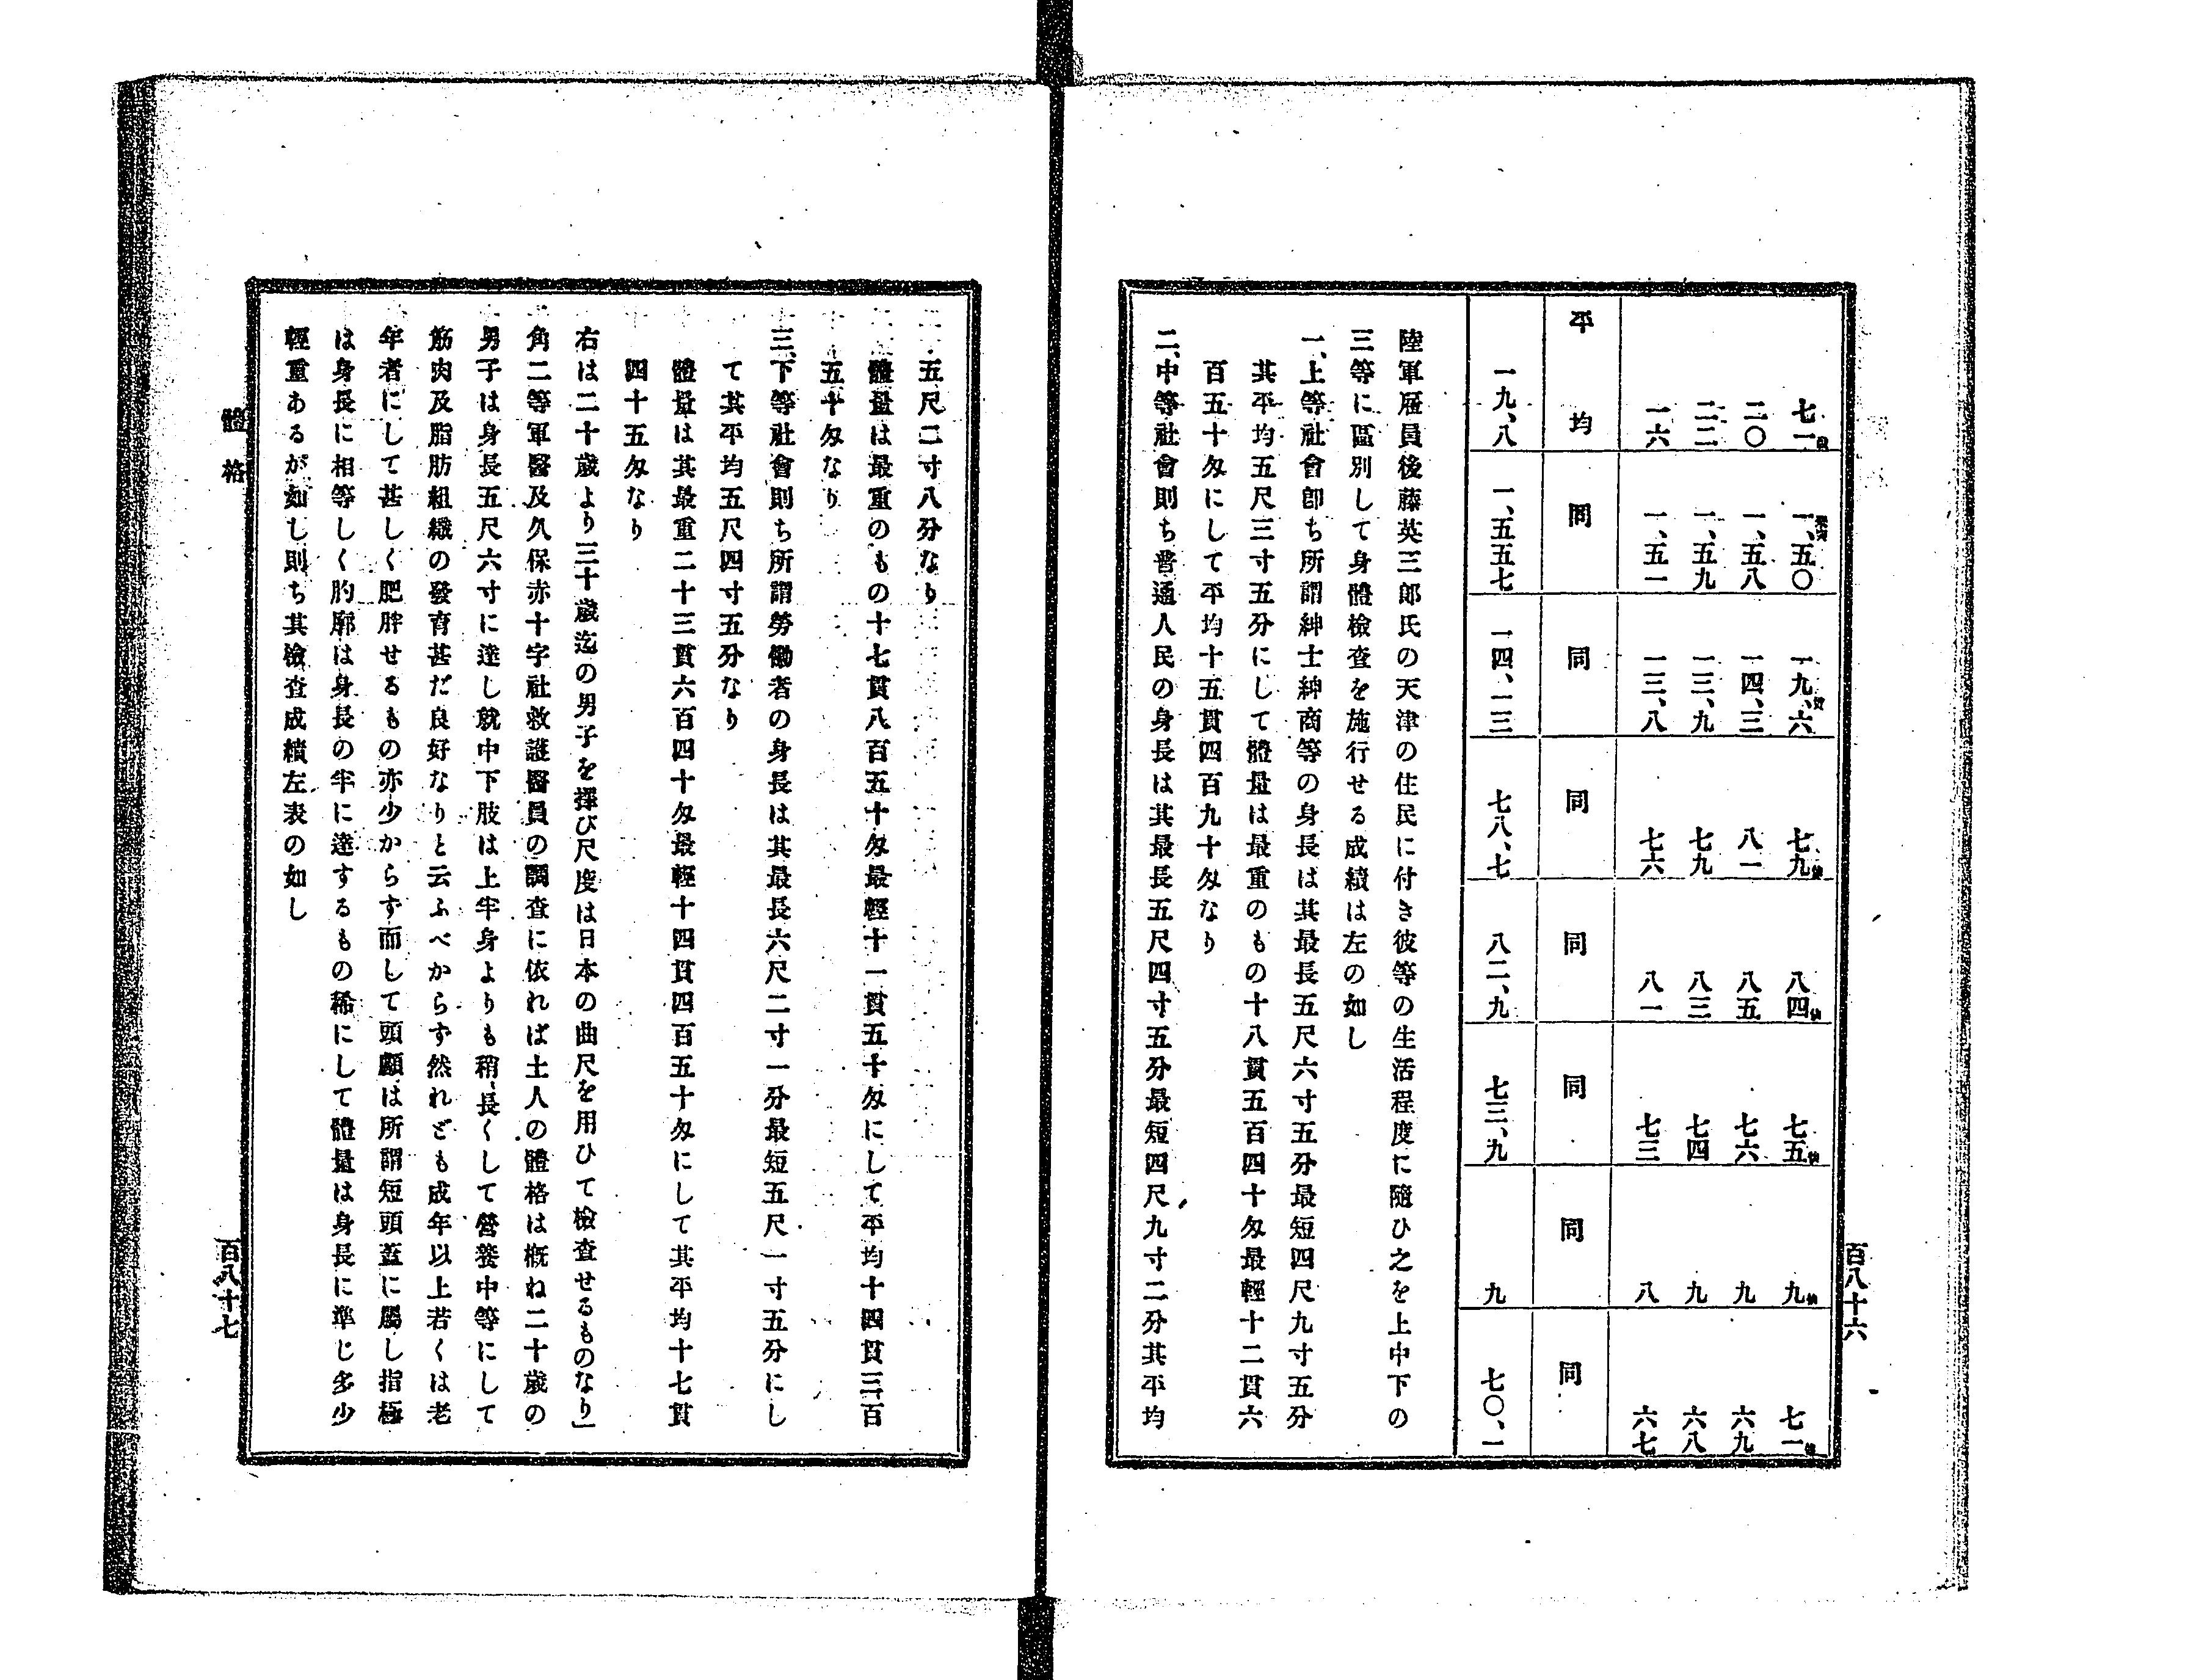 百八十六
七一 一、五〇 一九、六 七九 八四 七五 九 七一
二〇 一、五八 一四、三 八一 八五 七六 九 六九
二二 一、五九 一三、九 七九 八三 七四 九 六八
一六 一、五一 一三、八 七六 八一 七三 八 六七
平均 同 同 同 同 同 同 同
一九、八 一、五五七 一四、一三 七八、七 八二、九 七三、九 九 七〇、一
陸軍雇員後藤英三郎氏の天津の住民に付き彼等の生活程度に隨ひ之を上中下の
三等に區別して身體檢査を施行せる成績は左の如し
一、上等社會卽ち所謂紳士紳商等の身長は其最長五尺六寸五分最短四尺九寸五分
其平均五尺三寸五分にして體量は最重のもの十八貫五百四十匁最輕十二貫六
百五十匁にして平均十五貫四百九十匁なり
二、中等社會則ち普通人民の身長は其最長五尺四寸五分最短四尺九寸二分其平均
五尺二寸八分なり
體量は最重のもの十七貫八百五十匁最輕十一貫五十匁にして平均十四貫三百
五十匁なり
三、下等社會則ち所謂勞働者の身長は其最長六尺二寸一分最短五尺一寸五分にし
て其平均五尺四寸五分なり
體量は其最重二十三貫六百四十匁最輕十四貫四百五十匁にして其平均十七貫
四十五匁なり
右は二十歲より三十歲迄の男子を擇び尺度は日本の曲尺を用ひて檢査せるものなり」
角二等軍醫及久保赤十字社救護醫員の調査に依れば土人の體格は概ね二十歲の
男子は身長五尺六寸に達し就中下肢は上半身よりも稍長くして營養中等にして
筋肉及脂肪組織の發育甚だ良好なりと云ふべからず然れども成年以上若くは老
年者にして甚しく肥胖せるもの亦少からず而して頭顱は所謂短頭蓋に屬し指極
は身長に相等しく胸廓は身長の半に達するもの稀にして體量は身長に準じ多少
輕重あるが如し則ち其檢査成績左表の如し
體格
百八十七